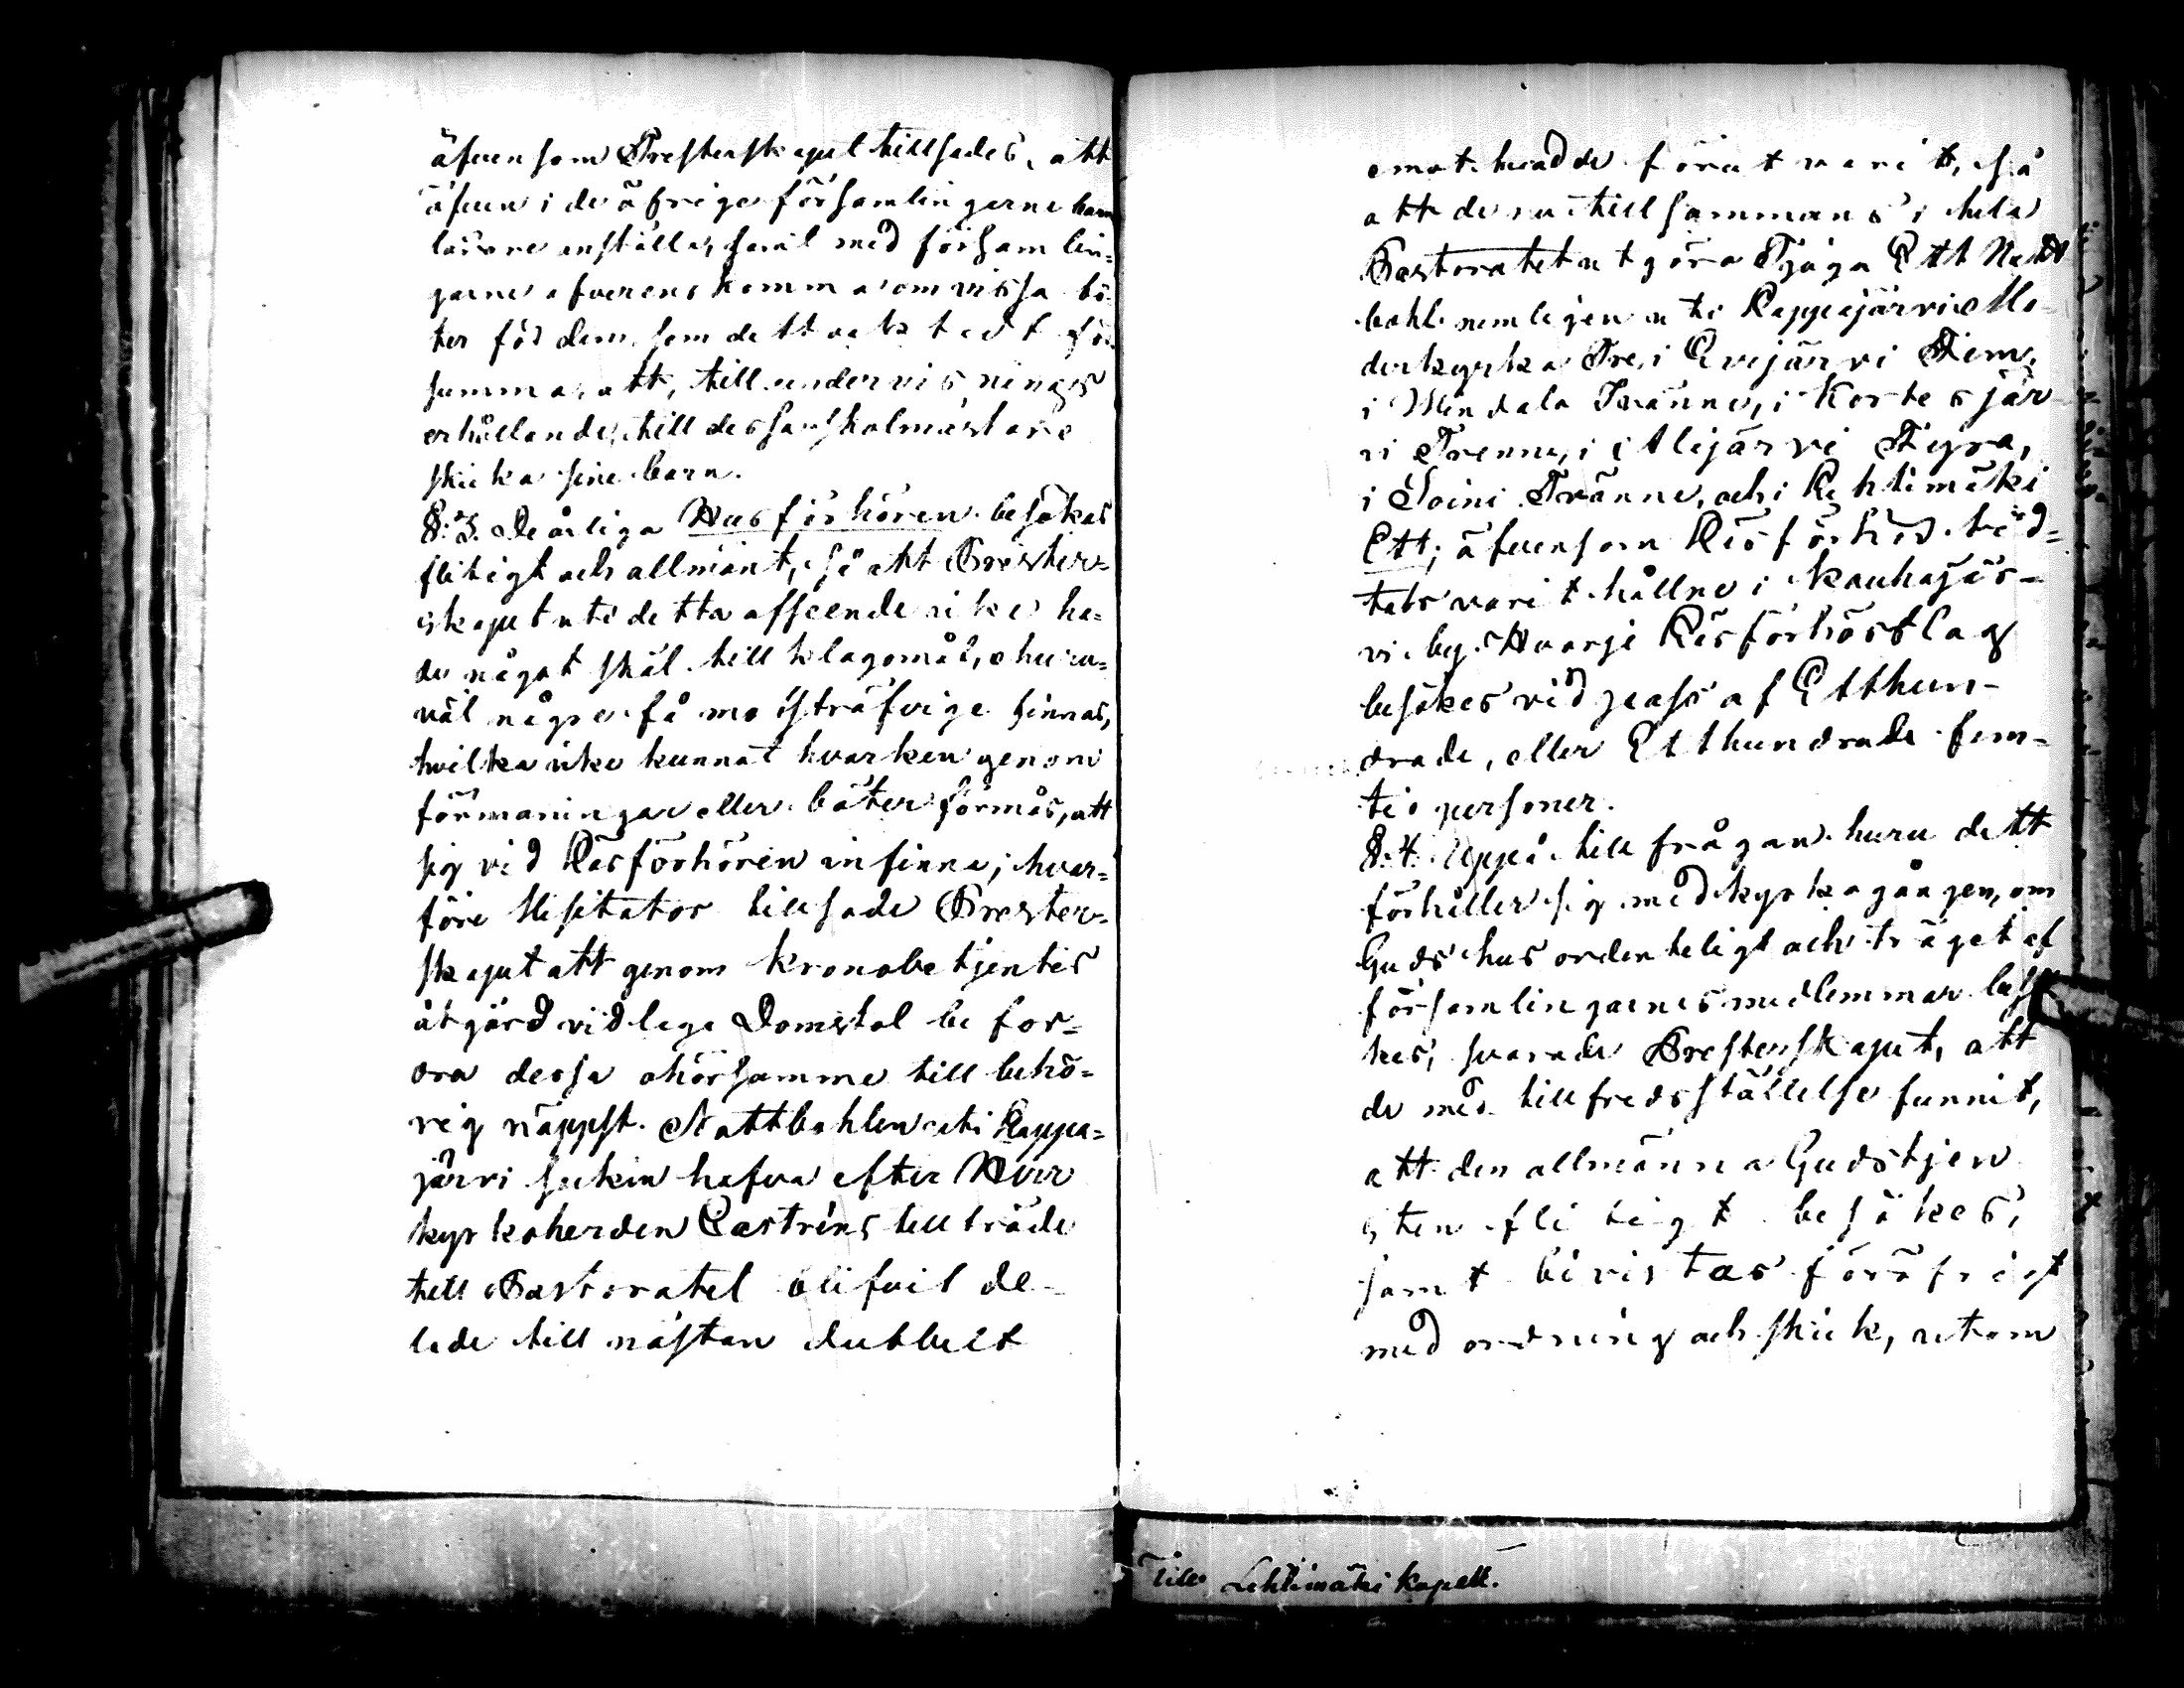 äfvensom Presterskapet tillsades, att
äfven i de öfrige församlingerne barn
lärare anställa, samt med församlin=
garne öfverenskomma om vissa bö-
ter för dem, som dettvetet för-
summa, att, till undervisnings
erhållande, till dessa skolmästare
skicka sine barn.
§: 3. De årliga Husförhören besökas
flitigt och allmänt, så att Prester=
skapet uti detta afseende icke ha=
de något skäl till klagomål, ehuru=
väl några få motsträfvige finnas,
hvilka icke kunnat hvarken genom
förmaningar eller böter förmås, att
sig vid Läsförhören infinna; hvar=
före Visitator tillsade Prester=
skapet att genom Kronobetjentes
åtgärd vid laga Domstol befor=
dra dessa ohörsamme till behö=
rig näppst. Nattbohlen uti Lappa=
järvi Socken hafva efter Herr
kyrkoherden Castréns tillträde
till Pastoratet blifvit de-
lade till nästan dubbelt
emot hvad de förut varit, så
att de nu tillsammans i hela
Pastoratet utgöra Tjugu Ett Natt
bohl nemligen uti Lappajärvi Mo-
derkyrka Tre, i Evijärvi Fem,
i Windala Tvänne, i Kortesjär
vi Trenne, i Alijärvi Fyra,
i Soini Tvänne, och i Lehtimäki
Ett; äfvensom Läsförhör städ=
tals varit hållne i Kauhajär-
vi by. Hvarje Läsförhörslag
besökes vid pass af Etthun-
drade, eller Etthundrade fem-
tio personer.
§: 4. Uppå tillfrågan huru dett
förhåller sig med kyrkogången, om
Guds hus ordenteligt och träget af
församlingarnes medlemmar besö
kes, svarade Presterskapet, att
de med tillfredsställelse funnit,
att den allmänna Gudstjen
sten flitigt besökes,
samt bivistas för öfrigt
med ordning och skick, utom
Till Lehtimäki Kapell.